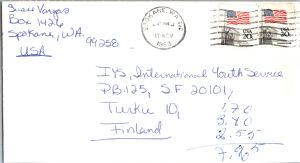 Susie Vargas
Box 1426
Spokane, WA.
99258
USA
SPOKANE, WA
PM
11 NOV
1983
USA
20c
USA
20c
IYS, International Youth Service
PB.125, SF 20101,
Turku 10,
Finland
1.70
3.40
2.55
7.65